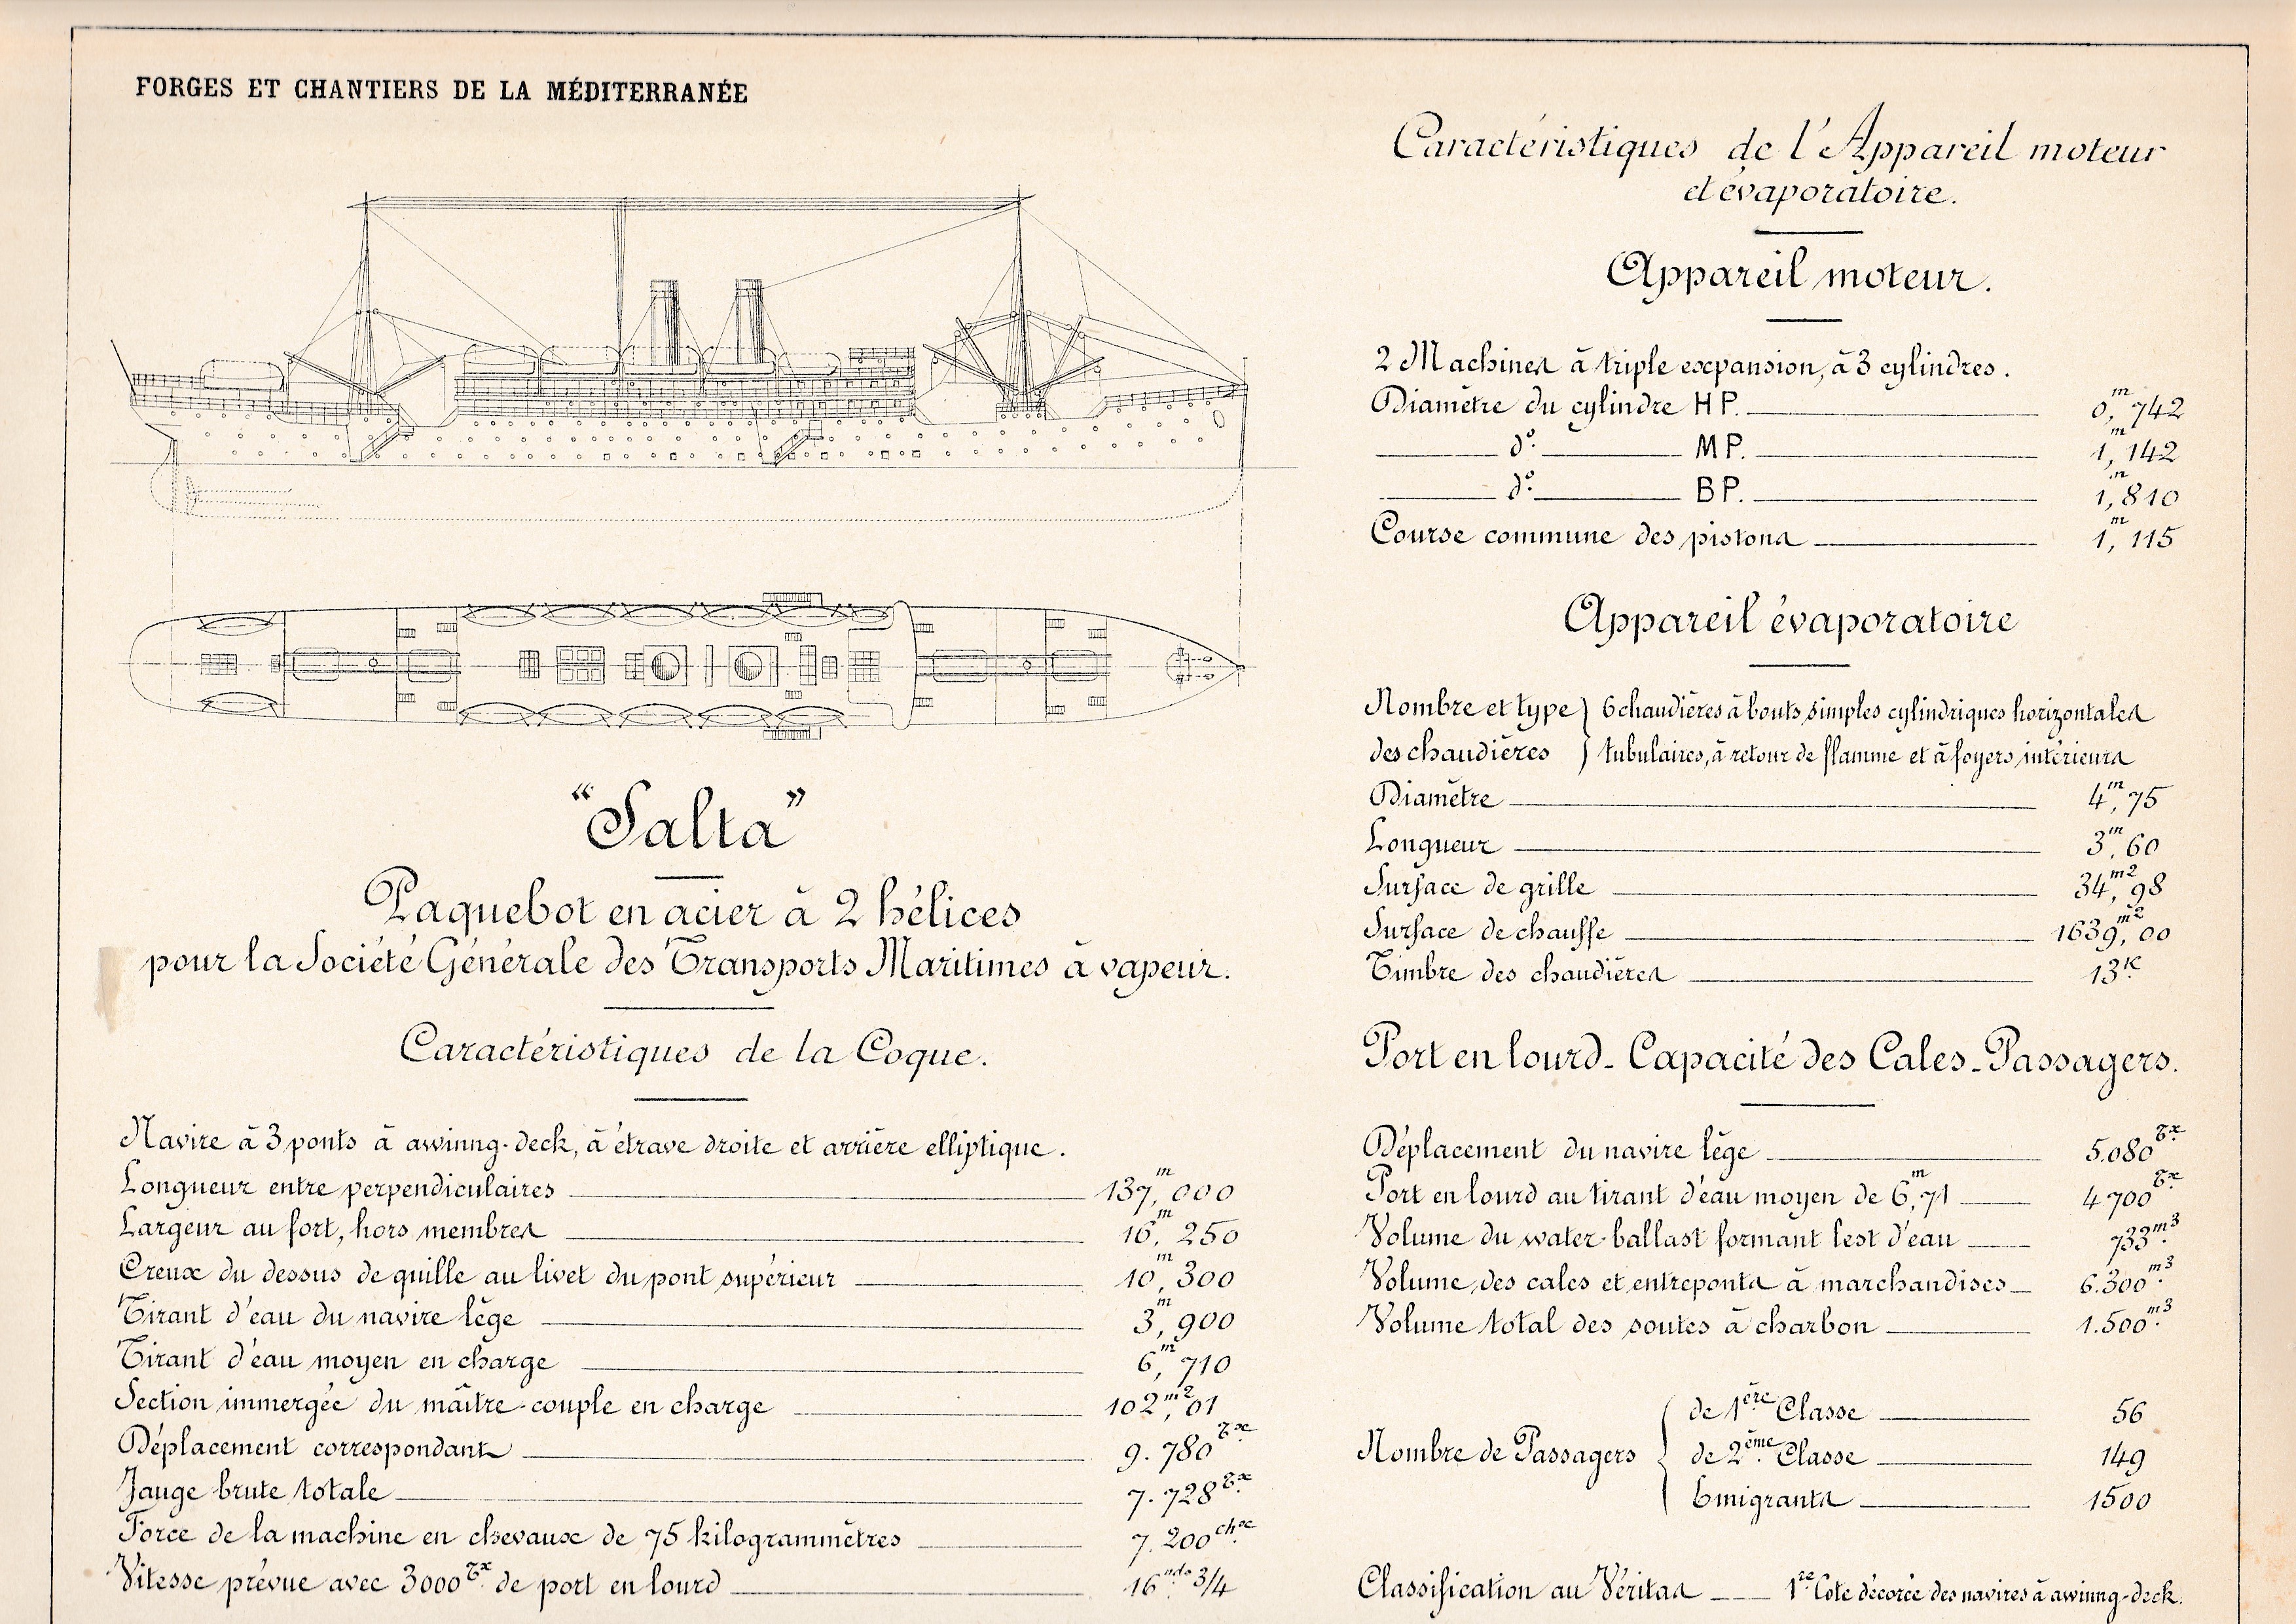 FORGES ET CHANTIERS DE LA MÉDITERRANÉE
"Salta"
Paquebot en acier à 2 hélices
pour la Société Générale des Transports Maritimes à vapeur.
Caractéristiques de la Coque.
Navire à 3 ponts à awinng-deck, à étrave droite et arrière elliptique.
Longueur entre perpendiculaires 137,m000
Largeur au fort, hors membres 16,m250
Creux du dessus de quille au livet du pont supérieur 10,m300
Tirant d'eau du navire lège 3,m900
Tirant d'eau moyen en charge 6,m710
Section immergée du maître-couple en charge 102,m201
Déplacement correspondant 9.780Tx
Jauge brute totale 7.728Tx
Force de la machine en chevaux de 75 kilogrammètres 7.200chx
Vitesse prévue avec 3000Tx de port en lourd 16nds 3/4
Caractéristiques de l'Appareil moteur
et évaporatoire.
Appareil moteur.
2 Machines à triple expansion, à 3 cylindres.
Diamètre du cylindre HP. 0,m742
do. MP. 1,m142
do. BP. 1,m810
Course commune des pistons 1,m115
Appareil évaporatoire
Nombre et type } 6 chaudières à bouts simples cylindriques horizontales
des chaudières } tubulaires, à retour de flamme et à foyers intérieurs
Diamètre 4,m75
Longueur 3,m60
Surface de grille 34,m298
Surface de chauffe 1639,m200
Timbre des chaudières 13K
Port en lourd - Capacité des Cales - Passagers.
Déplacement du navire lège 5.080Tx
Port en lourd au tirant d'eau moyen de 6,m71 4700Tx
Volume du water-ballast formant lest d'eau 733m3
Volume des cales et entreponts à marchandises 6.300m3
Volume total des soutes à charbon 1.500m3
de 1ère Classe 56
Nombre de Passagers { de 2ème Classe 149
Emigrants 1500
Classification au Véritas 1re Cote décorée des navires à awinng-deck.